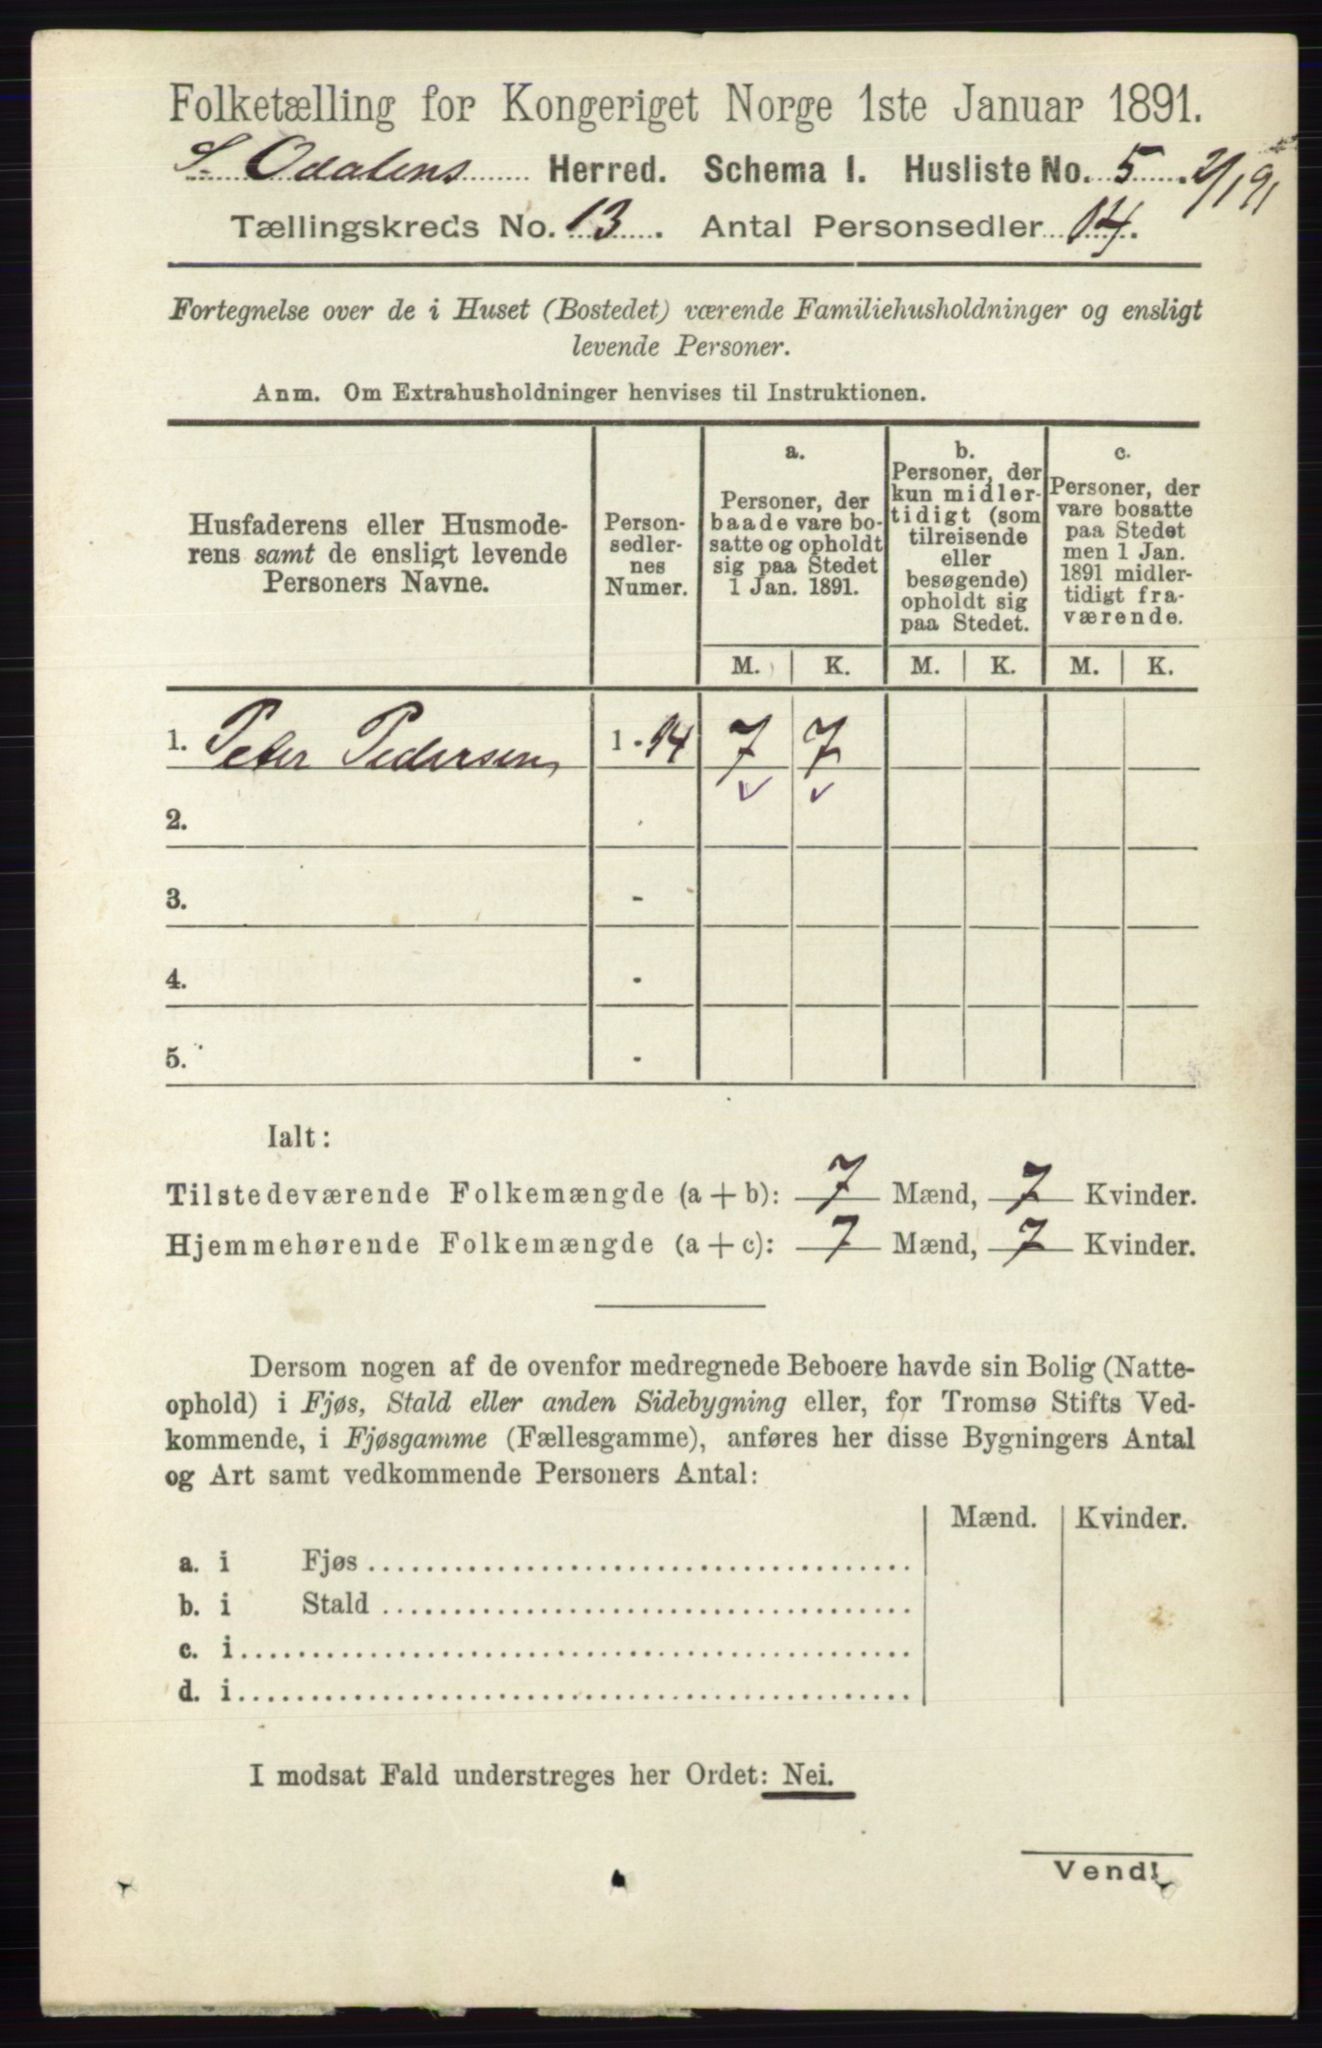 Folketælling for Kongeriget Norge 1ste Januar 1891.
S. Odalens Herred. Schema I. Husliste No. 5. 2/1 91
Tællingskreds No. 13. Antal Personsedler 14.
Fortegnelse over de i Huset (Bostedet) værende Familiehusholdninger og ensligt
levende Personer.
Anm. Om Extrahusholdninger henvises til Instruktionen.
Husfaderens eller Husmode-
rens samt de ensligt levende
Personers Navne.
Person-
sedler-
nes
Numer.
a.
Personer, der
baade vare bo-
satte og opholdt
sig paa Stedet
1 Jan. 1891.
b.
Personer, der
kun midler-
tidigt (som
tilreisende
eller
besøgende)
opholdt sig
paa Stedet.
c.
Personer, der
vare bosatte
paa Stedet
men 1 Jan.
1891 midler-
tidigt fra-
værende.
M. K. M. K. M. K.
1. Peter Pedersen 1 - 14 7 7
2.
3. -
4. -
5. -
Ialt:
Tilstedeværende Folkemængde (a + b): 7 Mænd, 7 Kvinder.
Hjemmehørende Folkemængde (a + c): 7 Mænd, 7 Kvinder.
Dersom nogen af de ovenfor medregnede Beboere havde sin Bolig (Natte-
ophold) i Fjøs, Stald eller anden Sidebygning eller, for Tromsø Stifts Ved-
kommende, i Fjøsgamme (Fællesgamme), anføres her disse Bygningers Antal
og Art samt vedkommende Personers Antal:
Mænd. Kvinder.
a. i Fjøs
b. i Stald
c. i
d. i
I modsat Fald understreges her Ordet: Nei.
Vend!